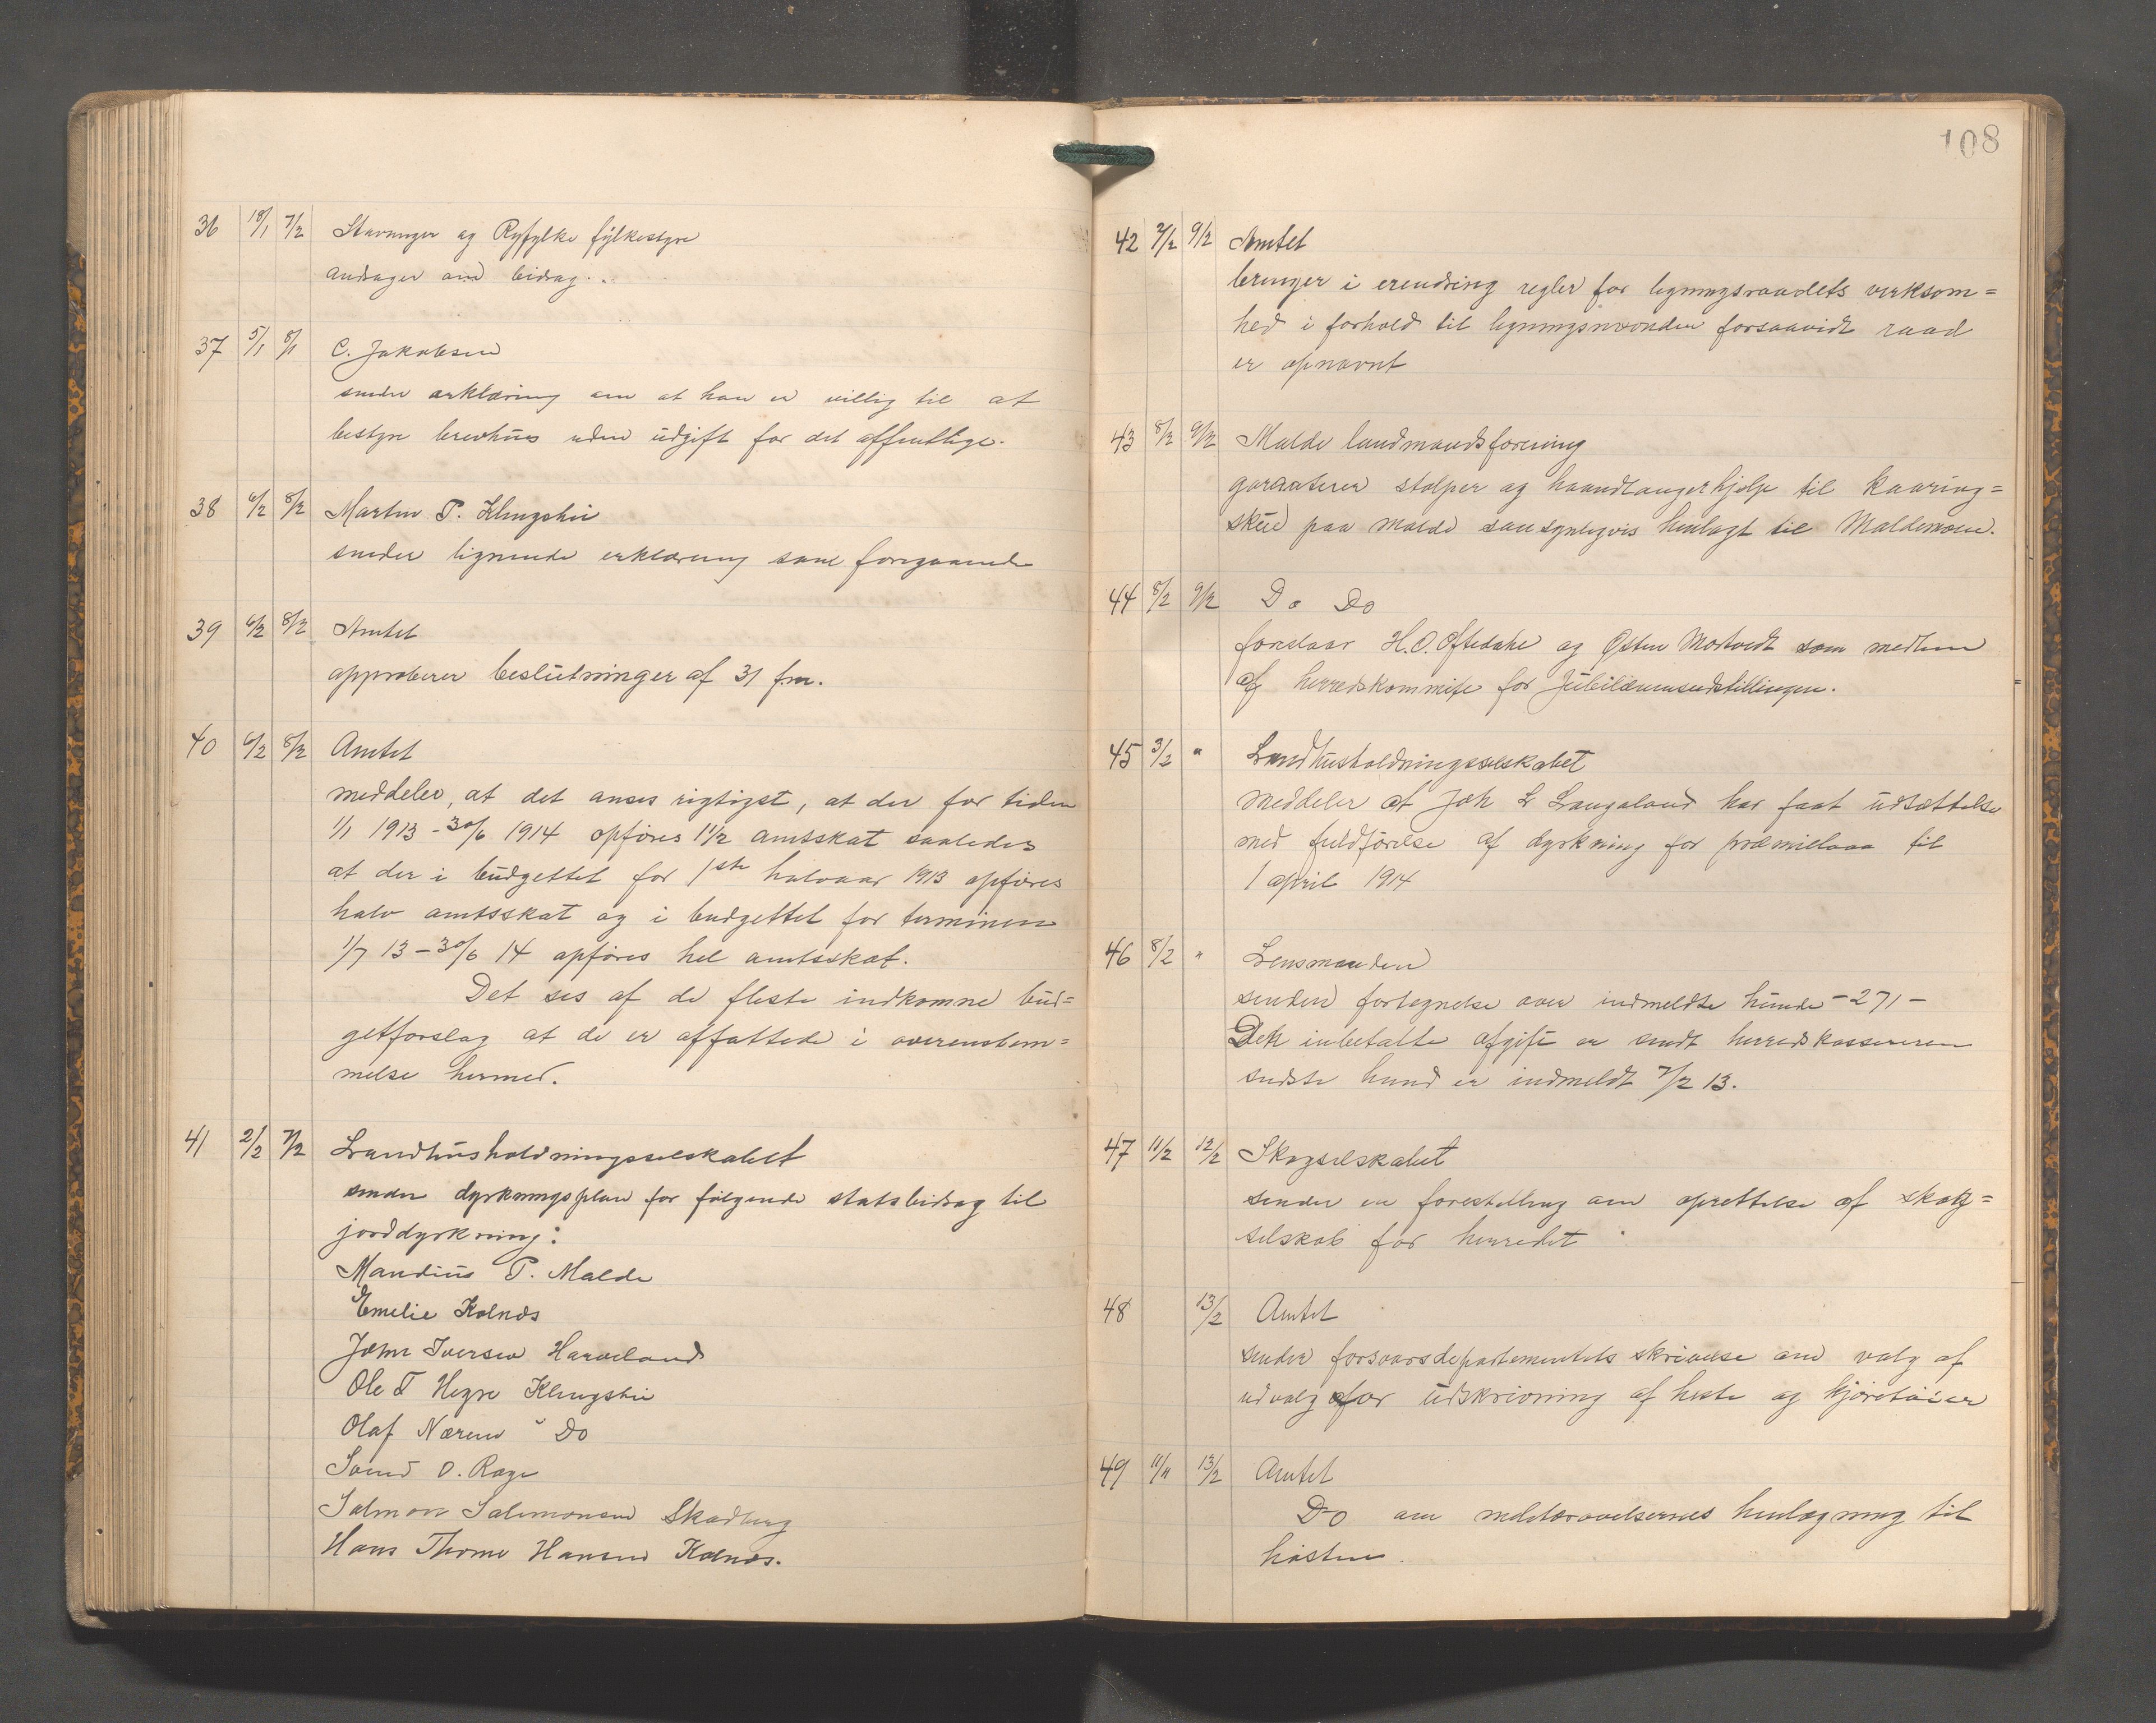 36 18/1 7/2 Stavanger og Ryfylke fylkestyre
andrager om bidrag.
37 5/1 8/1 C. Jakobsen
sender erklæring om at han er villig til at
bestyre brevhus uden udgift for det offentlige.
38 6/2 8/2 Martin T. Klungshei
sender lignende erklæring som foregaaende
39 6/2 8/2 Amtet
approberer beslutninger af 31 fm.
40 6/2 8/2 Amtet
meddeler, at det anses rigtigst, at der for tiden
1/1 1913 - 30/6 1914 opføres 1 1/2 amtskat saaledes
at der i budgettet for 1ste halvaar 1913 opføres
halv amtsskat og i budgettet for terminen
1/7 13 - 30/6 14 opføres hel amtsskat.
Det ses af de fleste indkomne bud=
getforslag at de er affattede i overenstem=
melse hermed.
41 2/2 7/2 Landhusholdningsselskabet
sender dyrkningsplan for følgende statsbidrag til
jorddyrkning:
Mandius P. Malde
Emelie Kolnes
John Iversen Haraland
Ole T Hegre Klungshei
Olaf Nærem " Do
Svend O. Rage
Salmon Salomonsen Skadberg
Hans Thome Hansen Kolnes.
108
42 7/2 9/2 Amtet
bringer i erendring regler for ligningsraadets virksom=
hed i forhold til ligningsnævnden forsaavidt raad
er opnævnt
43 8/2 9/2 Malde landmandsforening
garanterer stolper og haandlangerhjelp til kaaring=
skue paa Malde sansynligvis henlagt til Maldemoen.
44 8/2 9/2 Do Do
foreslaar H. O. Oftedahl og Østen Mostvedt som medlem
af herredskommite for Jubilæumsudstillingen.
45 3/2 " Landhusholdningsselskabet
meddeler at Joh L Langaland har faat udsættelse
med fuldførelse af dyrkning for præmielaan til
1 april 1914
46 8/2 " Lensmanden
sender fortegnelse over indmeldte hunde - 271 -
Den inbetalte afgift er sendt herredskassereren
sidste hund er indmeldt 7/2 13.
47 11/2 12/2 Skogselskabet
sender en forestilling om oprettelse af skog=
selskab for herredet
48 13/2 Amtet
sender forsvarsdepartementets skrivelse om valg af
udvalg for udskrivning af heste og kjøretøier
49 11/11 13/2 Amtet
Do om militærøvelsernes henlægning til
høsten.